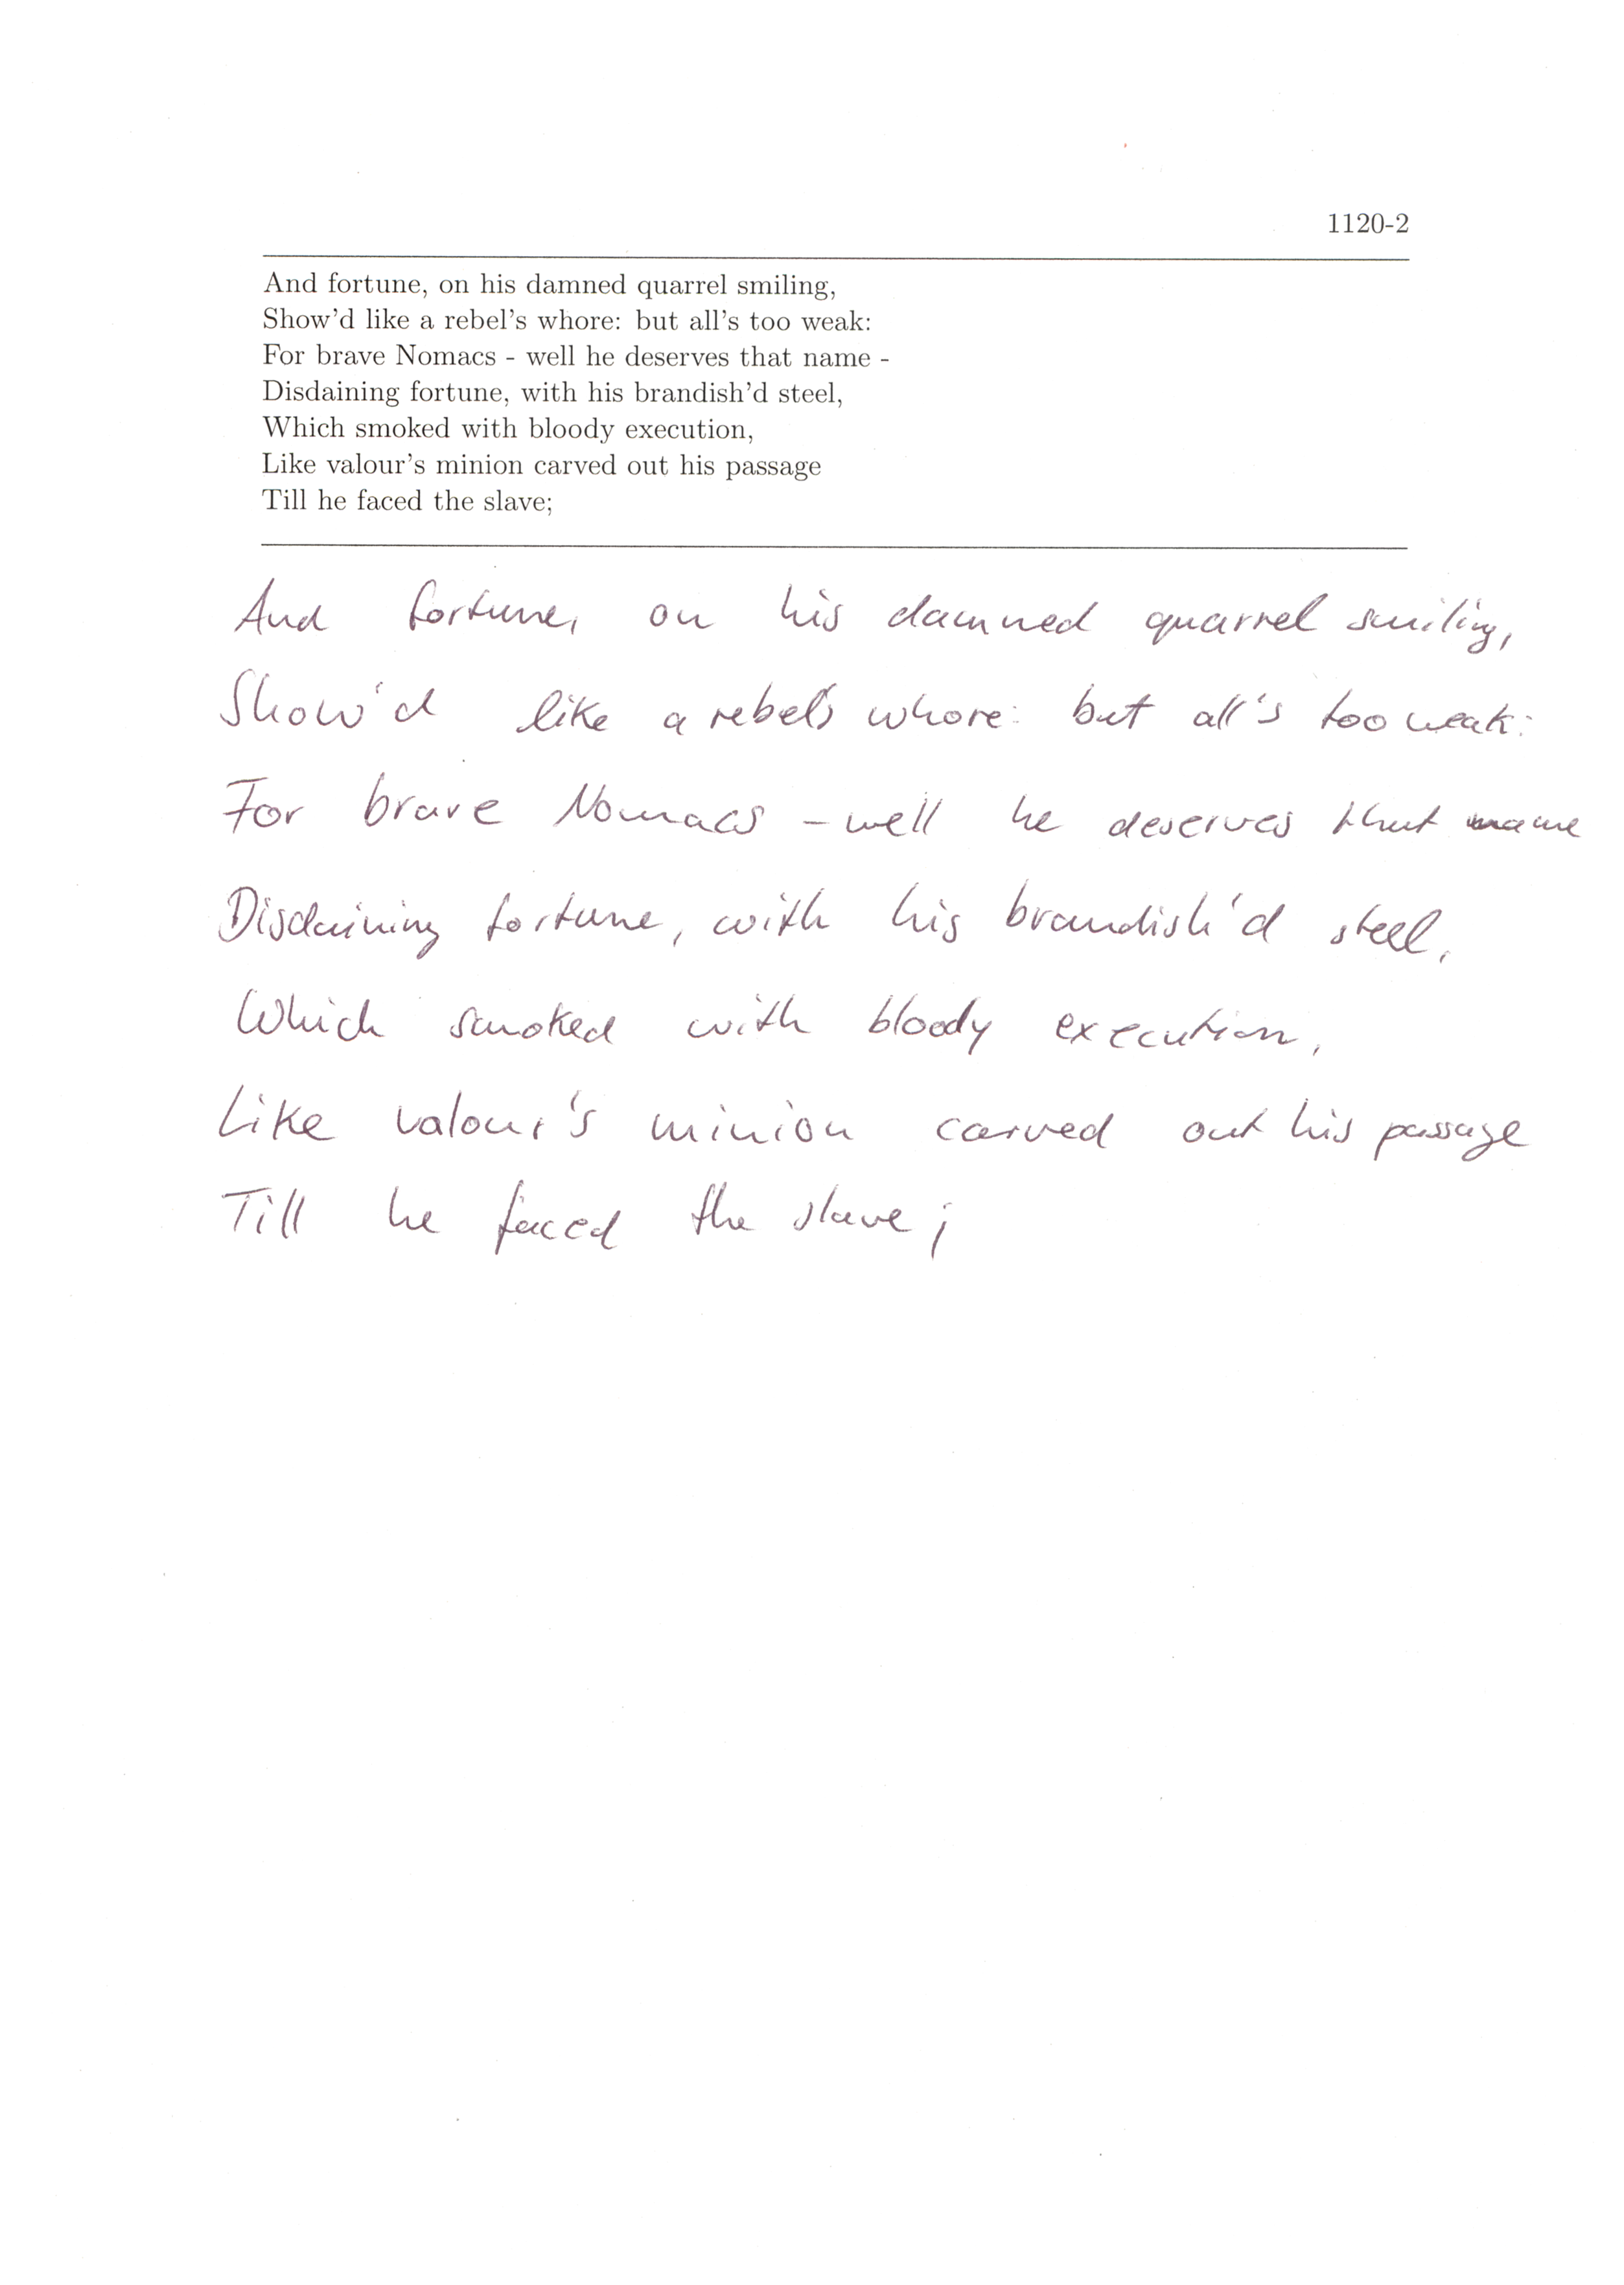 1120-2
And fortune, on his damned quarrel smiling,
Show'd like a rebel's whore: but all's too weak:
For brave Nomacs - well he deserves that name -
Disdaining fortune, with his brandish'd steel,
Which smoked with bloody execution,
Like valour's minion carved out his passage
Till he faced the slave;
And fortune, on his damned quarrel smiling,
Show'd like a rebel's whore: but all's too weak:
For brave Nomacs - well he deserves that name
Disdaining fortune, with his brandish'd steel,
Which smoked with bloody execution,
Like valour's minion carved out his passage
Till he faced the slave;